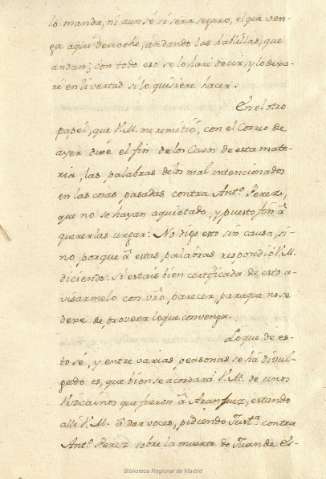 lo manda, ni aun se si sera seguro, el que ven-
ga aqui de noche, andando las hablillas, que
andan; con todo eso se lo haré decir, y lo dexa-
ré en livertad si lo quisiere hacer.
En el otro
papel, que V.M. me remitió, con el Correo de
ayer dixe el fin de los Casos de esta mate-
ria, las palabras de los mal intencionados
en las cosas pasadas contra Antº. Perez,
que no se hayan aquietado, y puesto fin à
quererlas urgar: No dige esto sin causa, si-
no porque à estas palabras respondió V.M.
diciendo: Si estais bien certificado de esto a-
visarmelo con vro, parecer, para que no se
dexe de proveer lo que convenga.
Lo que de es-
to se, y entre varias personas se ha divul-
gado es, que bien se acordará V.M. de unos
Vizcainos que fueron à Aranjuez, estando
alli V.M. à dar voces, pidiendo Justª. contra
Antº. Perez sobre la muerte de Juan de Es-
Biblioteca Regional de Madrid